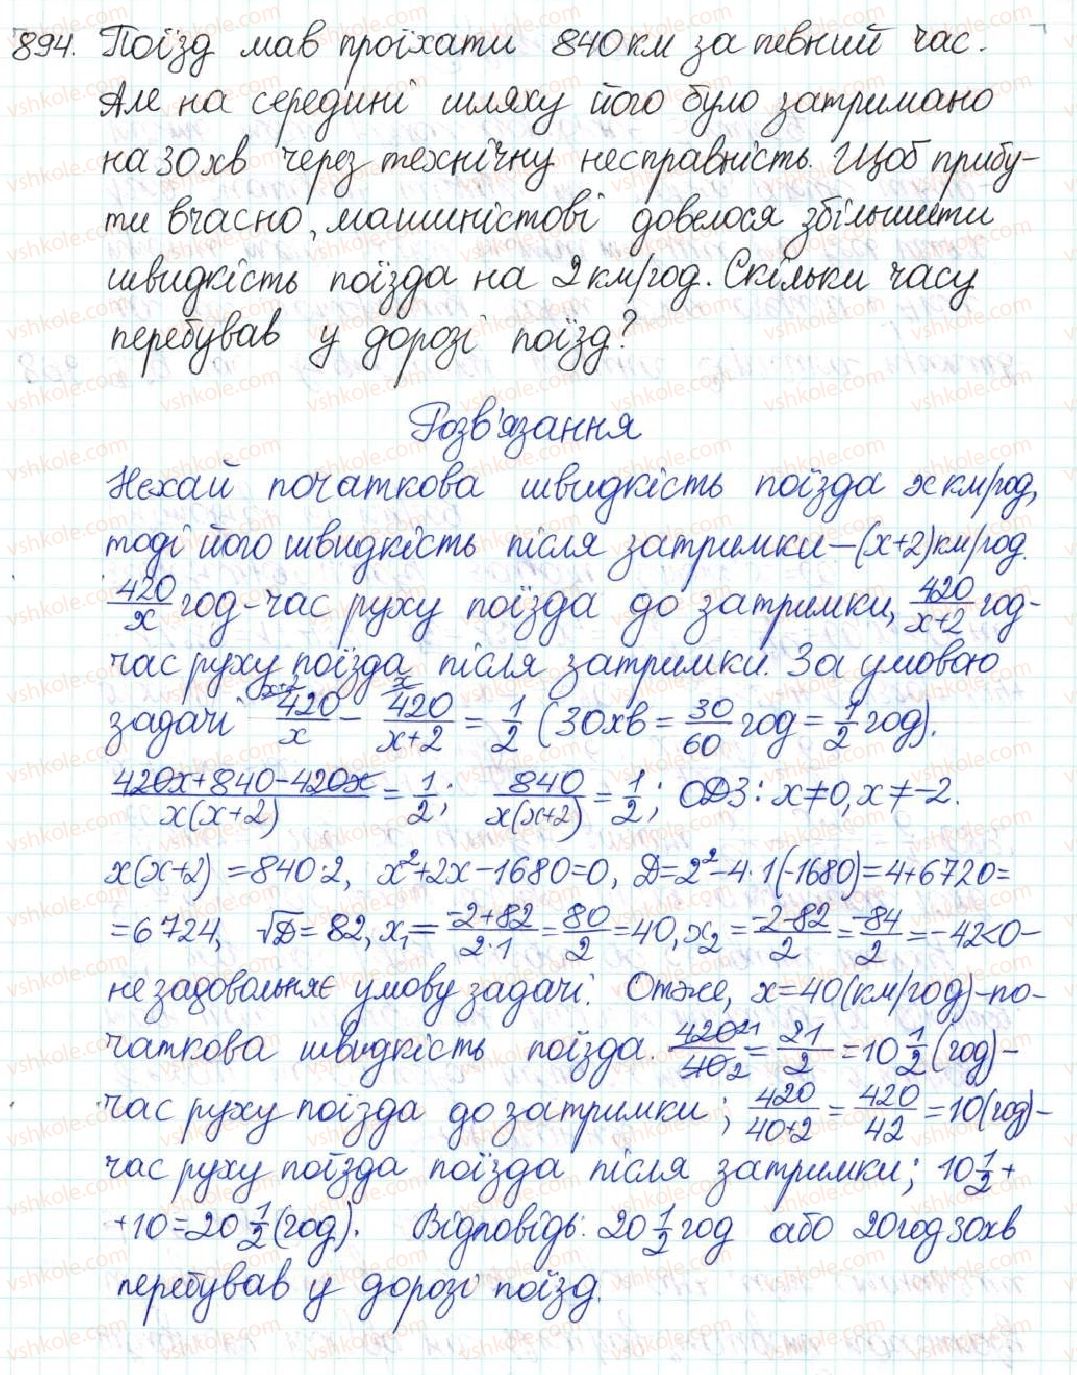 894. Поїзд мав проїхати 840 км за певний час.
Але на середині шляху його було затримано
на 30 хв через технічну несправність. Щоб прибу-
ти вчасно, машиністові довелося збільшити
швидкість поїзда на 2 км/год. Скільки часу
перебував у дорозі поїзд?
Розв'язання
Нехай початкова швидкість поїзда x км/год,
тоді його швидкість після затримки – (x+2) км/год.
420/x год - час руху поїзда до затримки, 420/(x+2) год -
час руху поїзда після затримки. За умовою
задачі 420/x (x+2) – 420/(x+2) (x) = 1/2 (30 хв = 30/60 год = 1/2 год).
(420x+840-420x)/(x(x+2)) = 1/2; 840/(x(x+2)) = 1/2; ОДЗ: x≠0, x≠-2.
x(x+2) = 840·2, x²+2x-1680=0, D=2²-4·1(-1680)=4+6720=
=6724, √D=82, x₁=(-2+82)/(2·1)=80/2=40, x₂=(-2-82)/2=-84/2=-42<0-
не задовольняє умову задачі. Отже, x=40(км/год)-по-
чаткова швидкість поїзда. 420 21/40 2=21/2=10 1/2 (год)-
час руху поїзда до затримки; 420/(40+2)=420/42=10(год)-
час руху поїзда поїзда після затримки; 10 1/2+
+10=20 1/2 (год). Відповідь: 20 1/2 год або 20 год 30 хв
перебував у дорозі поїзд.
vshkole.com